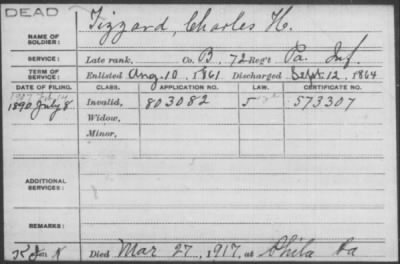 DEAD
NAME OF SOLDIER: Tizzard, Charles H.
SERVICE: Late rank, Co. B, 72 Reg't Pa. Inf.
TERM OF SERVICE: Enlisted Aug. 10, 1861 Discharged Sept. 12, 1864
DATE OF FILING. CLASS. APPLICATION NO. LAW. CERTIFICATE NO.
1890 July 8 Invalid, 803082 573307
Widow,
Minor,
ADDITIONAL SERVICES:
REMARKS:
Died Mar 27, 1917, at Phila Pa